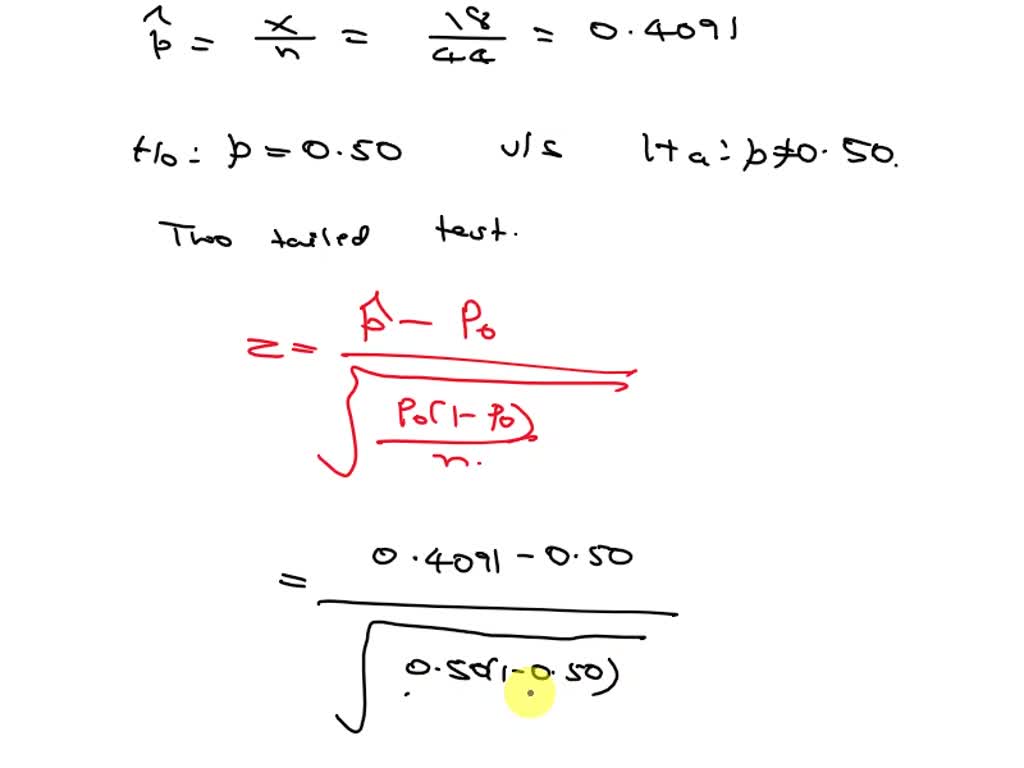 p̂ = x/n = 18/44 = 0.4091
H₀: p = 0.50 v/s Hₐ: p ≠ 0.50.
Two tailed test.
z = (p̂ − P₀) / √(P₀(1 − P₀)/n.)
= (0.4091 − 0.50) / √(0.50(1−0.50))